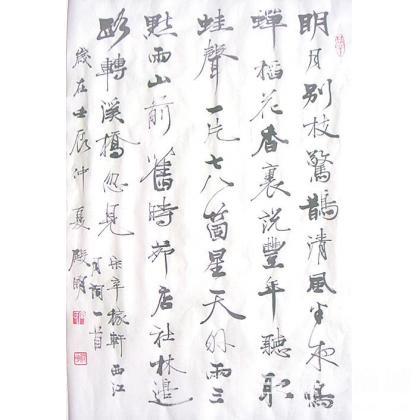 明月别枝驚鵲清風半夜鳴
蟬稻花香裏說豐年聽取
蛙聲一片七八箇星天外雨三
點雨山前舊時茆店社林邊
路轉溪橋忽見
宋辛稼軒西江
月詞一首
歲在壬辰仲夏